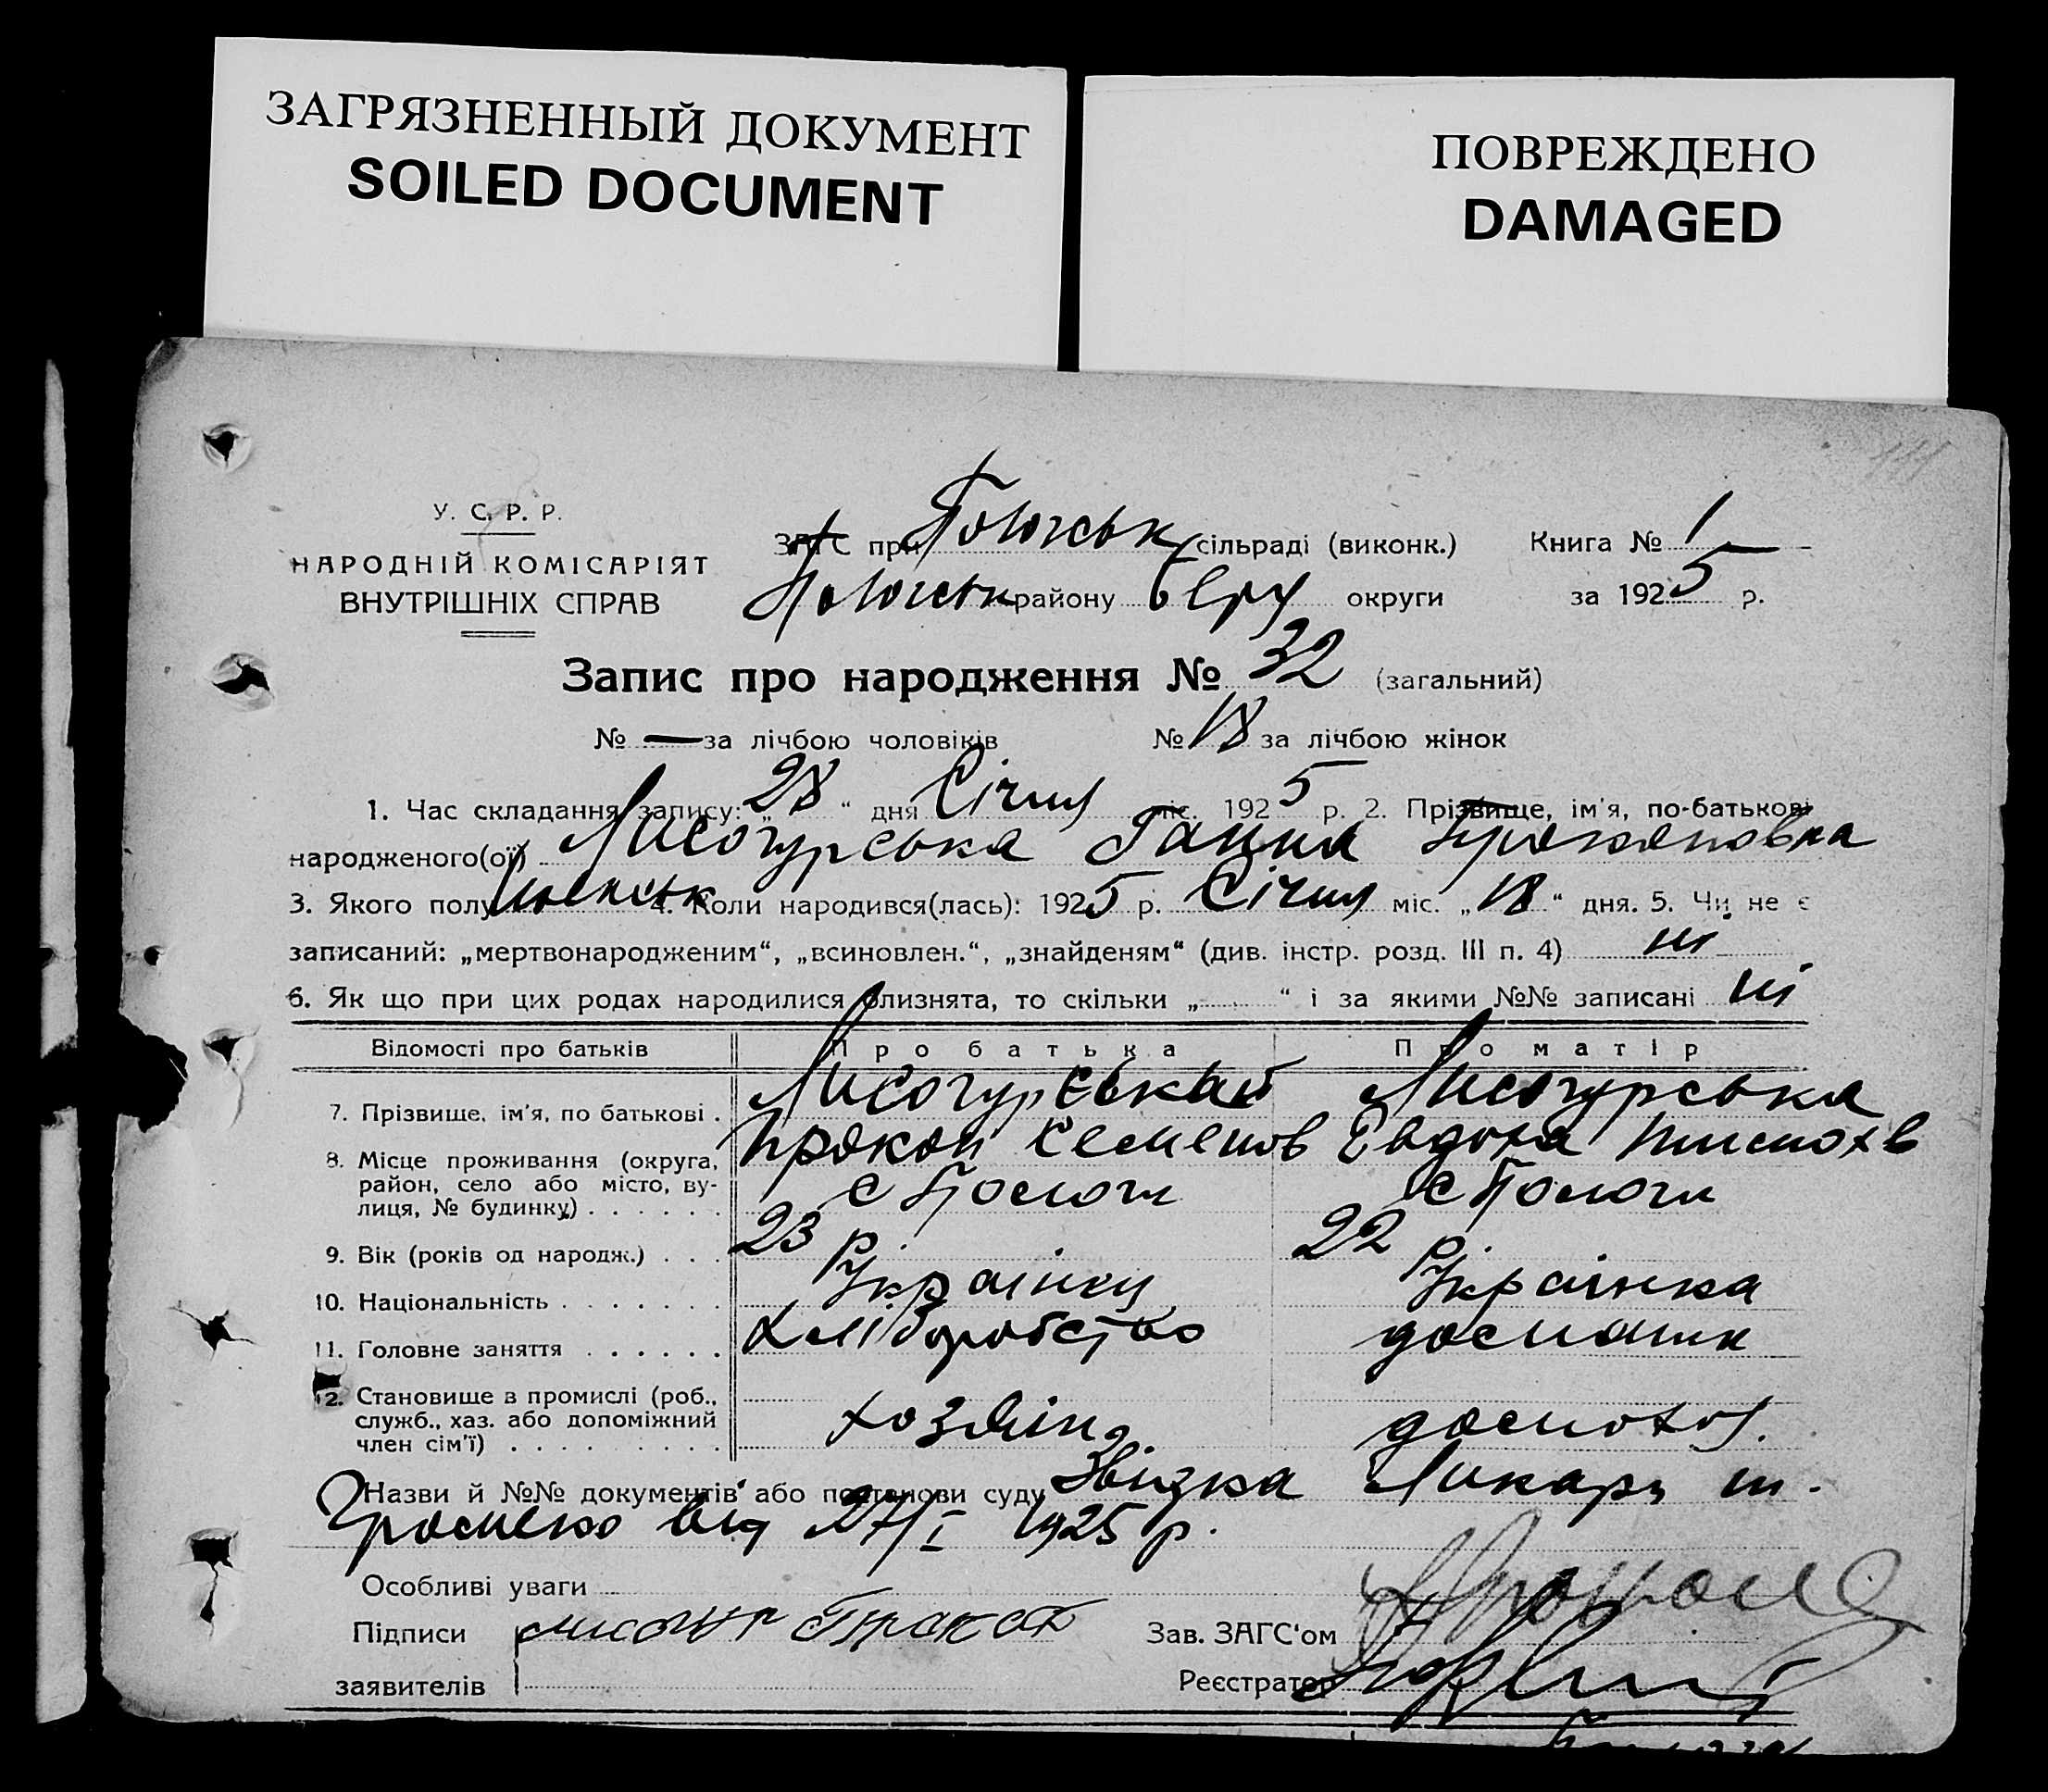 ЗАГРЯЗНЕННЫЙ ДОКУМЕНТ
SOILED DOCUMENT
ПОВРЕЖДЕНО
DAMAGED
У. С. Р. Р.
НАРОДНІЙ КОМІСАРІЯТ
ВНУТРІШНІХ СПРАВ
ЗАГС при Пологськ сільраді (виконк.) Книга № 1
Пологськ району округи за 1925 р.
Запис про народження № 32 (загальний)
№ — за лічбою чоловіків № 18 за лічбою жінок
1. Час складання запису: „28“ дня Січня міс. 1925 р. 2. Прізвище, ім'я, по-батькові
народженого(ої) Лисогурська Ганна Прокоповна
3. Якого полу женськ 4. Коли народився(лась): 1925 р. Січня міс. „18“ дня. 5. Чи не є
записаний: „мертвонародженим“, „всиновлен.“, „знайденям“ (див. інстр. розд. III п. 4) ні
6. Як що при цих родах народилися близнята, то скільки „ “ і за якими №№ записані ні
Відомості про батьків Про батька Про матір
7. Прізвище, ім'я, по батькові . Лисогурський Прокоп Семенов Лисогурська Евдоха
8. Місце проживання (округа, район, село або місто, вулиця, № будинку) . . . . . . с Пологи с Пологи
9. Вік (років од народж.) . . . 23 р. 22 р.
10. Національність . . . . . . . Українец Українка
11. Головне заняття . . . . . . Хліборобство
12. Становище в промислі (роб., служб., хаз. або допоміжний член сім'ї) . . . . . . . . . хозяїн
Назви й №№ документів або постанови суду Звідка Ликаря
Громеко від 27/I 1925 р.
Особливі уваги
Підписи Лисогур Прокоп Зав. ЗАГС'ом
заявителів Реєстратор